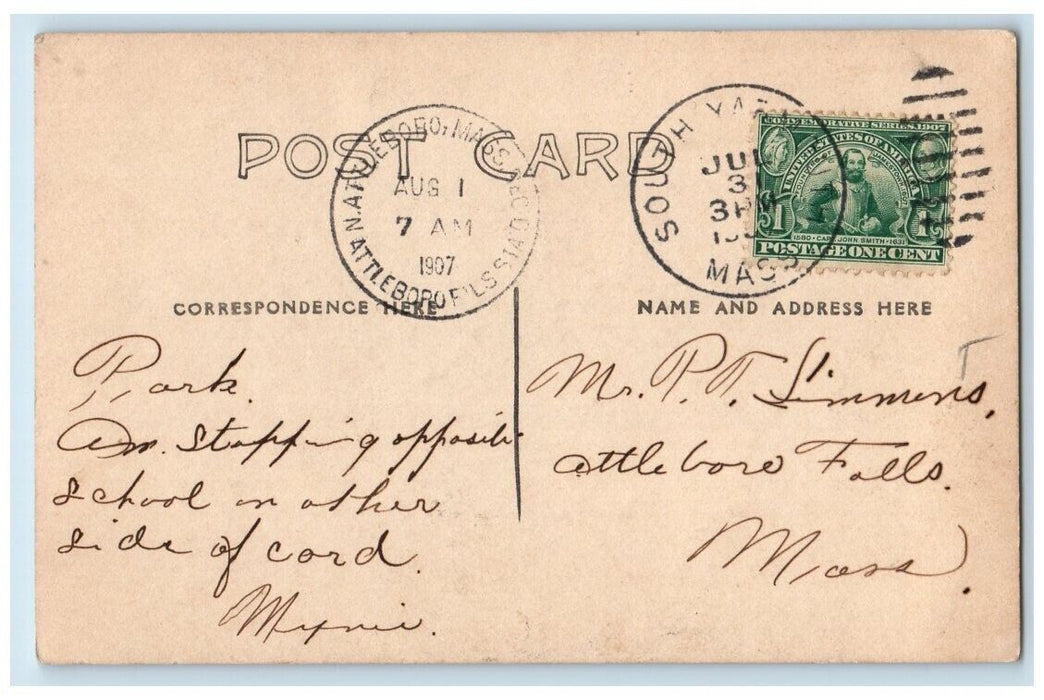 POST CARD
N. ATTLEBORO, MASS. REC'D.
AUG 1
7 AM
1907
ATTLEBORO F'LS STA
SOUTH YAR
JUL
3
3 PM
MASS
COMMEMORATIVE SERIES, 1907
UNITED STATES OF AMERICA
1580 · CAPT. JOHN SMITH · 1631
1 1
POSTAGE ONE CENT
CORRESPONDENCE HERE
NAME AND ADDRESS HERE
Park.
Am. stopping opposite
school on other
side of card.
Mr. P. T. Simmons,
Attleboro Falls.
Mass.
T